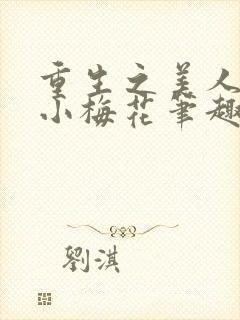 重生之美人
小梅花笔趣
劉淇